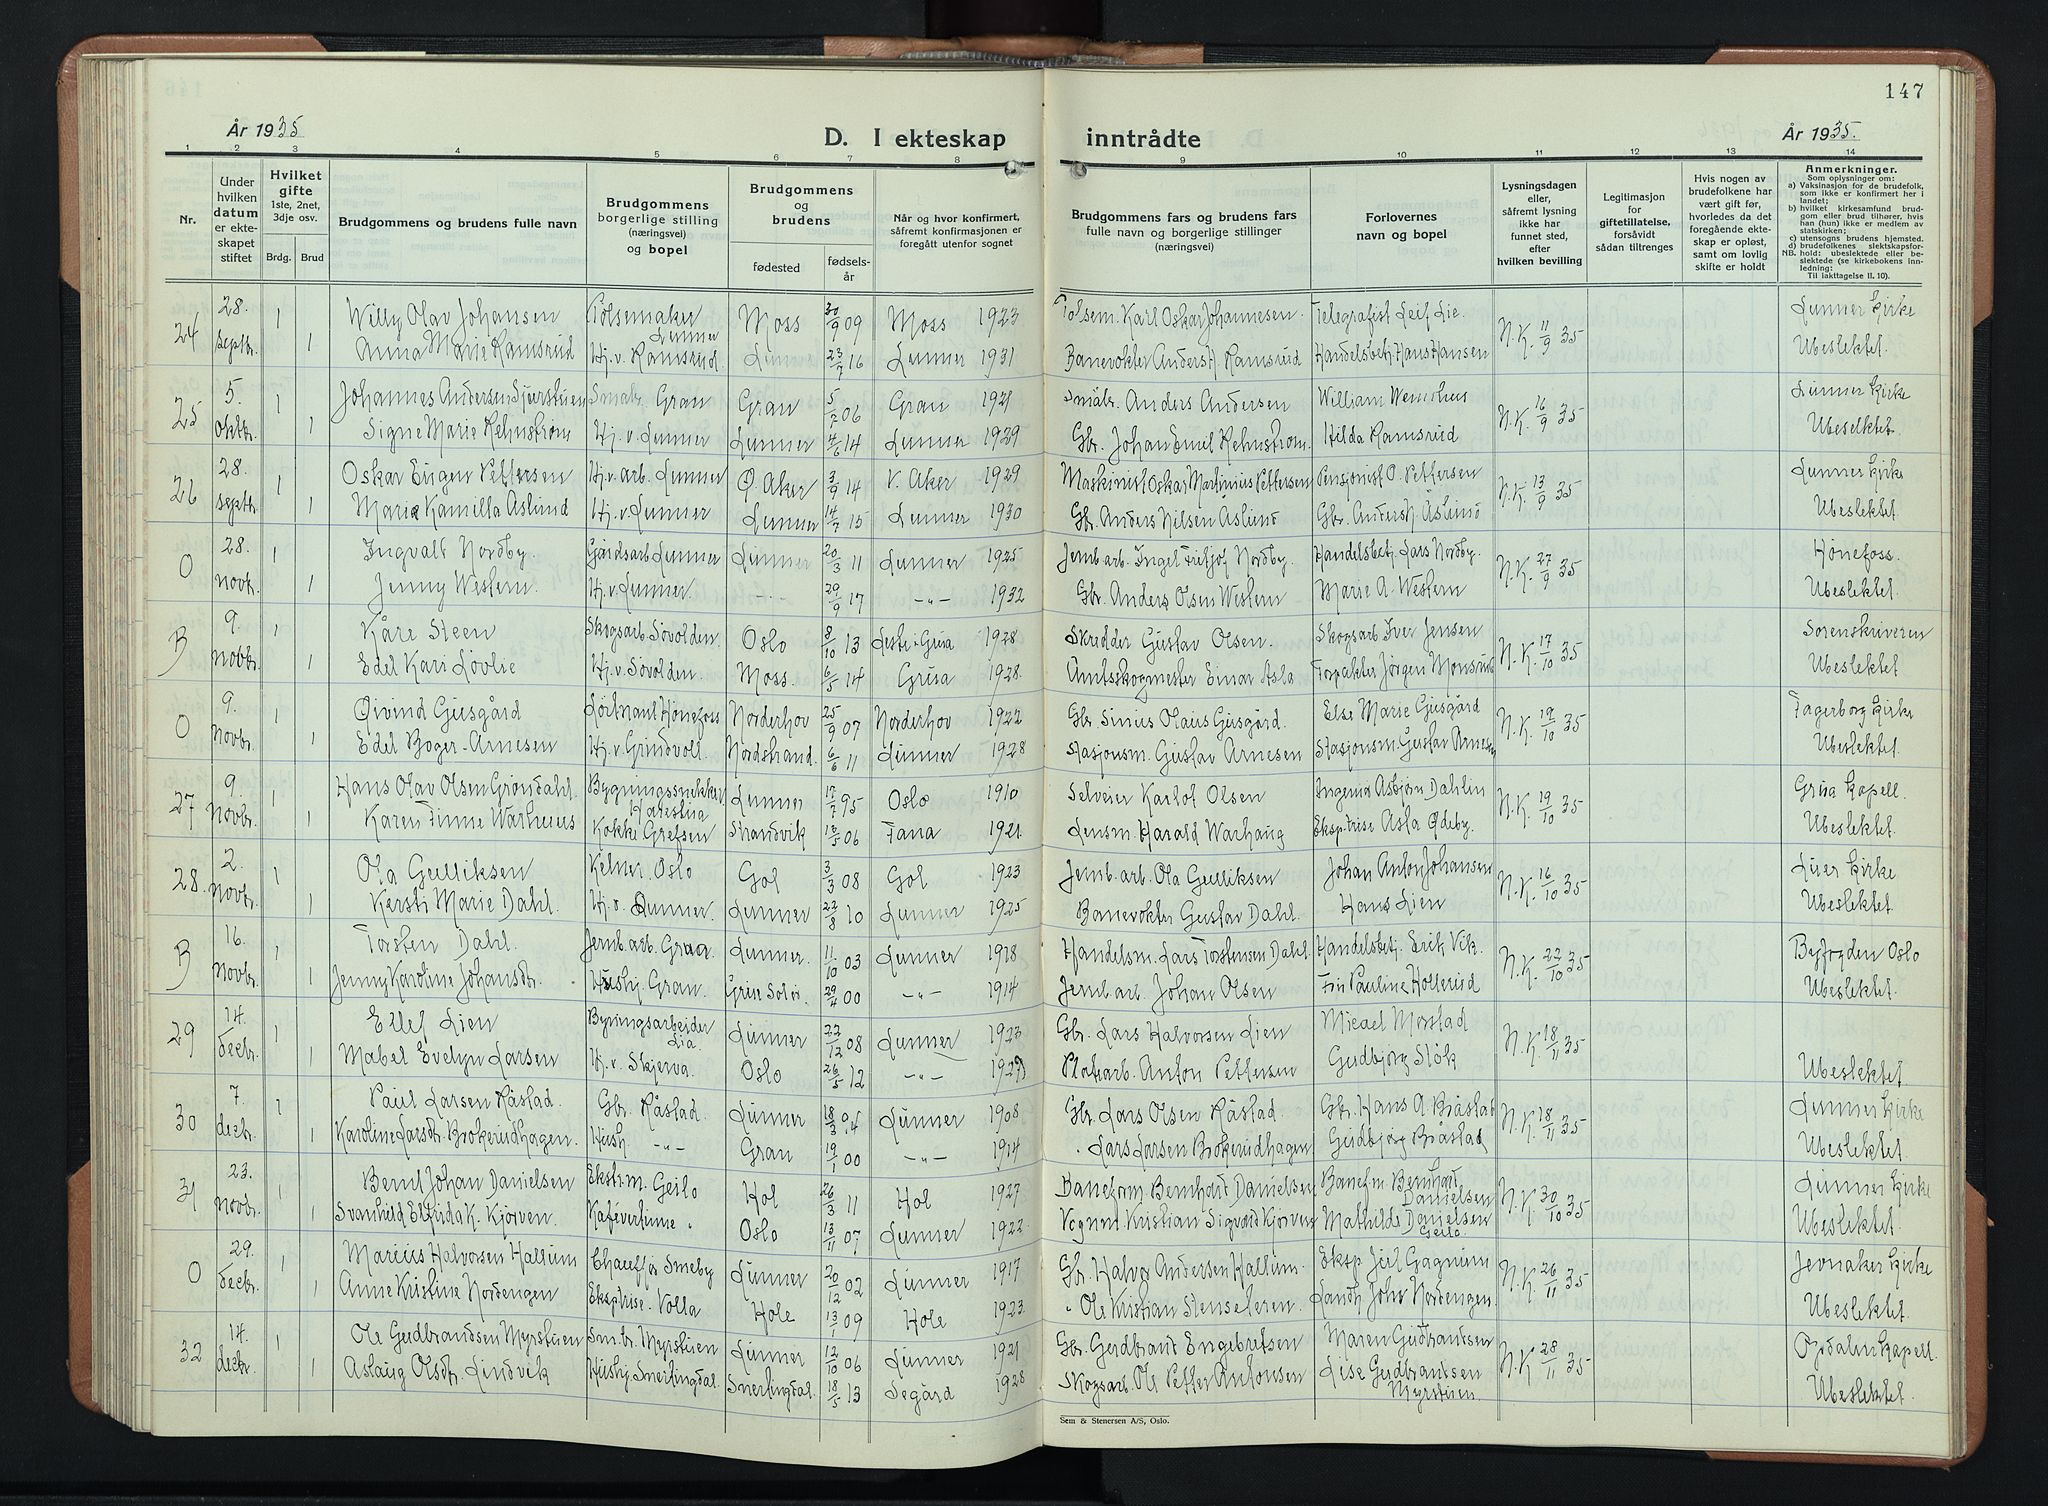 147
År 1935
D. I ekteskap inntrådte
År 1935.
1 2 3 4 5 6 7 8 9 10 11 12 13 14
Nr.
Under hvilken datum er ekteskapet stiftet
Hvilket gifte 1ste, 2net, 3dje osv.
Brdg. Brud
Brudgommens og brudens fulle navn
Brudgommens borgerlige stilling (næringsvei) og bopel
Brudgommens og brudens
fødested
fødselsår
Når og hvor konfirmert, såfremt konfirmasjonen er foregått utenfor sognet
Brudgommens fars og brudens fars fulle navn og borgerlige stillinger (næringsvei)
Forlovernes navn og bopel
Lysningsdagen eller, såfremt lysning ikke har funnet sted, efter hvilken bevilling
Legitimasjon for giftetillatelse, forsåvidt sådan tiltrenges
Hvis nogen av brudefolkene har vært gift før, hvorledes da det foregående ekteskap er opløst, samt om lovlig skifte er holdt
Anmerkninger.
Som oplysninger om:
a) Vaksinasjon for de brudefolk, som ikke er konfirmert her i landet;
b) hvilket kirkesamfund brudgom eller brud tilhører, hvis han (hun) ikke er medlem av statskirken;
c) utensogns brudens hjemsted.
d) brudefolkenes slektskapsforhold: ubeslektede eller beslektede (se kirkebokens innledning:
NB.
Til iakttagelse II. 10).
24 28. septbr. 1 Willy Olav Johansen Pølsemaker Lunner Moss 30/9 09 Moss 1923 Pølsem. Karl Oskar Johannesen. Telegrafist Leif Lie. N.K. 11/9 35 Lunner kirke
1 Anna Marie Ramsrud Hj.v. Ramsrud. Lunner 23/7 16 Lunner 1931 Banevokter Anders H. Ramsrud Handelsbetj. Hans Hansen Ubeslektet.
25 5. oktbr. 1 Johannes Andersen Sjurstuen Småbr. Gran Gran 5/7 06 Gran 1921 Småbr. Anders Andersen William N.K. 16/9 35 Lunner kirke
1 Signe Marie Rehnstrøm Hj.v. Lunner Lunner 4/6 14 Lunner 1929 Gbr. Johan Emil Rehnstrøm. Hilda Ramsrud Ubeselktet.
26 28 septr. 1 Oskar Eugen Pettersen Hj.v. arb. Lunner Ø. Aker 3/9 14 V. Aker 1929 Maskinist Oskar Martinius Pettersen Pensjonist O. Pettersen N.K. 13/9 35 Lunner kirke
1 Marie Kamilla Åslund Hj.v. Lunner Lunner 14/7 15 Lunner 1930 Gbr. Anders Nilsen Åslund Gbr. Anders N. Åslund Ubeslektet
0 28. novbr. 1 Ingvalt Nordby Gårdsarb. Lunner Lunner 20/3 11 Lunner 1925 Jernb.arb. Ingel Fritjof Nordby. Handelsbetj. Lars Nordby. N.K. 27/9 35 Hønefoss.
1 Jenny Western. Hj.v. Lunner. -"- 29/9 17 -"- 1932 Gbr. Anders Olsen Western Marie A. Western Ubeslektet.
B 9. novbr. 1 Kåre Steen Skogsarb. Søvolden. Oslo 8/10 13 Grua 1928 Skredder Gustav Olsen. Skogsarb. Iver Jensen N.K. 17/10 35 Sorenskriveren
1 Edel Kari Løvlie Hj.v. Søvolden. Moss. 6/5 14 Grua 1928. Amtsskogmester Einar Asla Forpakter Jørgen Monsrud Ubeslektet
0 9. novbr. 1 Øivind Gusgård Løitnant Hønefoss Norderhov 25/9 07 Norderhov 1922 Gbr. Sinus Olaus Gusgård. Else Marie Gusgård N.K. 19/10 35 Fagerborg kirke
1 Edel Boger-Arnesen Hj.v. Grindvoll Nordstrand. 6/6 11 Lunner 1928 Stasjonsm. Gustav Arnesen Stasjonsm. Gustav Arnesen Ubeslektet.
27 9. novbr. 1 Hans Olav Olsen Grøndahl. Bygningssnekker Harestua Lunner 17/7 95 Oslo 1910 Selveier Karlot Olsen Ingeniør Asbjørn Dahlin N.K. 19/10 35 Grua kapell.
1 Karen Finne Warhuus Kokke Grefsen Strandvik 18/5 06 Fana 1921. Lensm. Harald Warhaug Eksptrise Asla Ødeby. Ubeslektet.
28. 2. novbr. 1 Ola Gulliksen Kelner. Oslo Gol 3/3 08 Gol 1923 Jernb.arb. Ola Gulliksen Johan Anton Johansen N.K. 16/10 35 Lier kirke
1 Kersti Marie Dahl. Hj.v. Lunner. Lunner 22/8 10 Lunner 1925 Banevokter Gustav Dahl. Hans Lien Ubeslektet.
B 16. novbr. 1 Torsten Dahl. Jernb.arb. Grua Lunner. 11/10 03 Lunner 1918 Handelsm. Lars Torstensen Dahl. Handelsbetj. Erik Vik. N.K. 22/10 35 Byfogden Oslo
1 Jenny Karoline Johansdr. Hushj. Gran. Grue Solør. 29/4 00 -"- 1914 Jernb.arb. Johan Olsen Fru Pauline Hollerud Ubeslektet.
29 14. decbr. 1 Ellef Lien Byningsarbeider Lia. Lunner 22/12 08 Lunner 1923 Gbr. Lars Halvorsen Lien Micael Morstad N.K. 18/11 35
1 Mabel Evelyn Larsen Hj.v. Skjerva. Oslo 26/5 12 -"- 1927 Anton Pettersen Gudbjørg Støk Ubeslektet.
30 7. decbr. 1 Paul Larsen Råstad. Gbr. Råstad. Lunner 18/3 94 Lunner 1908 Gbr. Lars Olsen Råstad Gbr. Hans A. Bråstad N.K. 18/11 35 Lunner kirke
1 Karoline Larsdtr. Brokerudhagen. Hush. -"- Gran 19/1 00 -"- 1914 " Lars Larsen Brokerudhagen Gudbjørg Bråstad Ubeslektet.
31 23. novbr. 1 Bernt Johan Danielsen Ekstr.m. Geilo Hol 26/3 11 Hol 1927 Baneform. Bernhart Danielsen Baneform. Bernhart Danielsen N.K. 30/10 35 Lunner kirke
1 Svanhild Elfrida K. Kjørven. Kafévertinne " Oslo 13/11 07 Lunner 1922 Vognm. Kristian Sigvald Kjørven Mathilde Danielsen Geilo. Ubeslektet.
0 29. decbr. 1 Marius Halvorsen Hallum Chauffør Smeby Lunner 20/12 02 Lunner 1917 Gbr. Halvor Andersen Hallum. Eksp. Gagnum N.K. 26/11 35 Jevnaker kirke
1 Anne Kristine Nordengen Eksptrise. Volla Hole 13/1 09 Hole 1923. " Ole Kristian Stenseteren. Landh. Johs. Nordengen. Ubeslektet.
32 14. decbr. 1 Ole Gudbrandsen Myrstuen Sm.br. Myrstuen Lunner 12/10 06 Lunner 1921 Gbr. Gudbrand Engebretsen Maren Gudbrandsen N.K. 28/11 35 Opdalen kapell.
1 Aslaug Olsdtr. Lindvik Hushj. Snertingdal. Snertingdal. 18/5 13 Segård 1928 Skogsarb. Ole Petter Antonsen Lise Gudbrandsen Myrstuen Ubeslektet.
Sem & Stenersen A/S, Oslo.